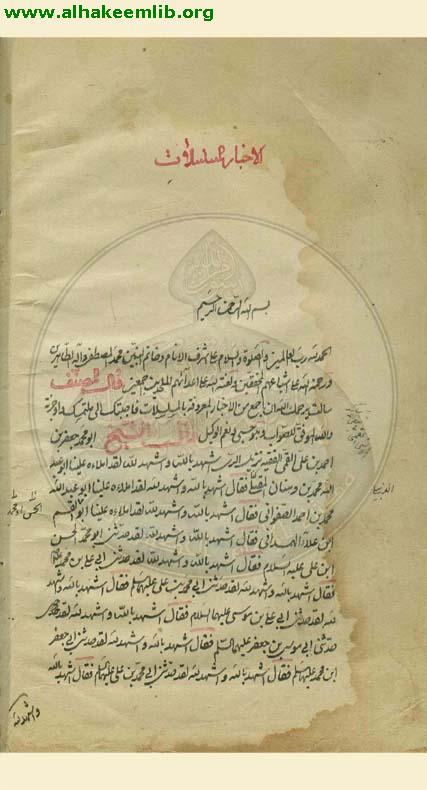 www.alhakeemlib.org
الاخبار المسلسلات
بسم الله الرحمن الرحيم
الحمد لله رب العالمين والصلوة والسلام على اشرف الانام وخاتم النبيين محمد المصطفى واله الطاهرين
ورحمة الله على اشياعهم المحقين ولعنة الله على اعدائهم اجمعين قال المصنف
سالت جمع من الاخبار المعروفة بالمسلسلات فاجبتك الى ملتمسك
والله الموفق للصواب وهو حسبي ونعم الوكيل قال الشيخ ابو محمد جعفر بن
احمد بن على القمى الفقيه نزيل الرى اشهد بالله واشهد لله لقد املاه علينا ابو عبد
الله محمد بن وهبان فقال اشهد بالله واشهد لله لقد املاه علينا ابو عبد الله
محمد بن احمد الصفوانى فقال اشهد بالله واشهد لله لقد املاه علينا ابو القسم
ابن علاء الهمدانى فقال اشهد بالله واشهد لله لقد حدثنى ابو محمد الحسن
ابن على عليه السلام فقال اشهد بالله واشهد لله لقد حدثنى ابى على بن محمد
فقال اشهد بالله واشهد لله لقد حدثنى ابى محمد بن على عليهما السلم فقال اشهد بالله واشهد
لله لقد حدثنى ابى على بن موسى عليهما السلام فقال اشهد بالله واشهد لله لقد
حدثنى ابى موسى بن جعفر عليهما السلم فقال اشهد بالله واشهد لله لقد حدثنى ابى جعفر
ابن محمد عليهما السلم فقال اشهد بالله واشهد لله لقد حدثنى ابى محمد بن على عليهما السلم فقال اشهد بالله
واشهد لله